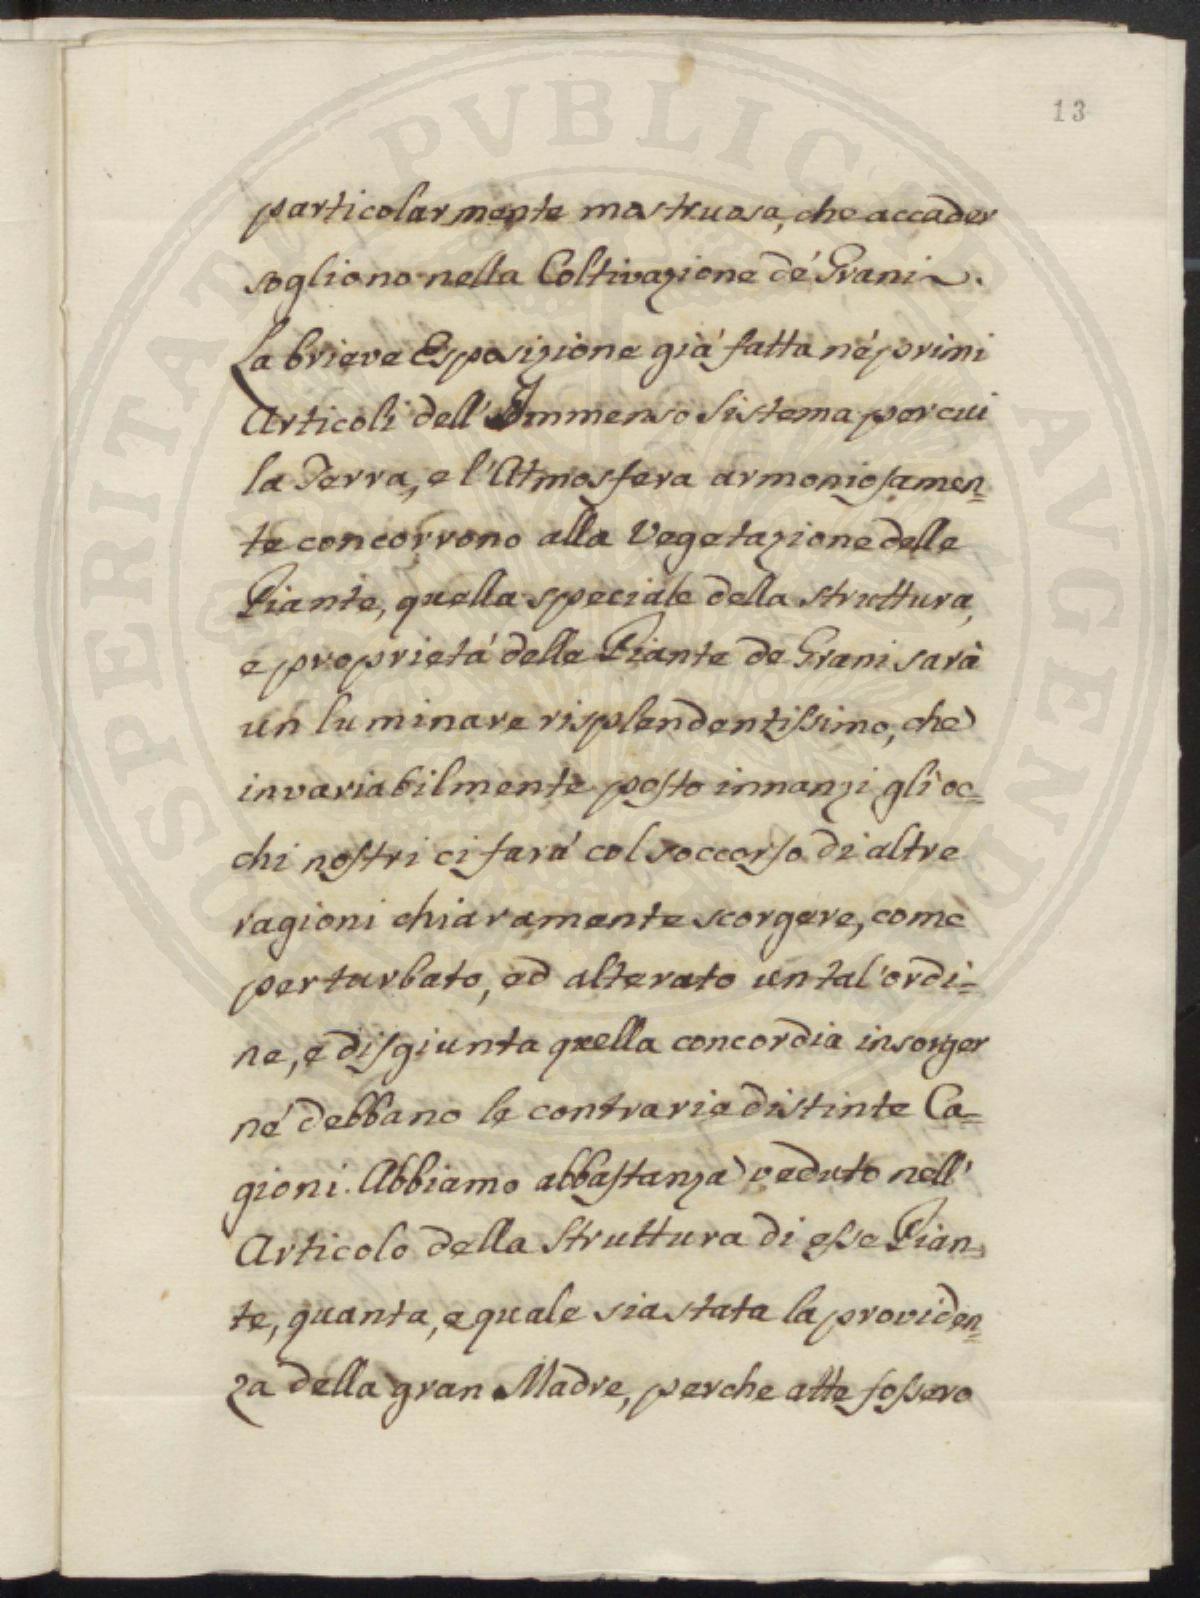 13
particolarmente mostruosa, che accader
sogliono nella Coltivazione dé Grani.
La brieve Esposizione giá fatta né primi
Articoli dell'Immenso Sistema per cui
la Terra, e l'Atmosfera armoniosamen=
te concorrono alla Vegetazione delle
Piante, quella speciale della struttura,
e proprietá delle Piante de Grani sarà
un luminare risplendentissimo, che
invariabilmente posto innanzi gli oc=
chi nostri ci fará col soccorso di altre
ragioni chiaramente scorgere, come
perturbato, ed alterato un tal'ordi=
ne, e disgiunta quella concordia insorger
né debbano le contrarie distinte Ca=
gioni. Abbiamo abbastanza veduto nell'
Articolo della Struttura di esse Pian=
te, quanta, e quale sia stata la providen=
za della gran Madre, perche atte fossero
SOSPERITATI PVBLICAE AVGENDAE